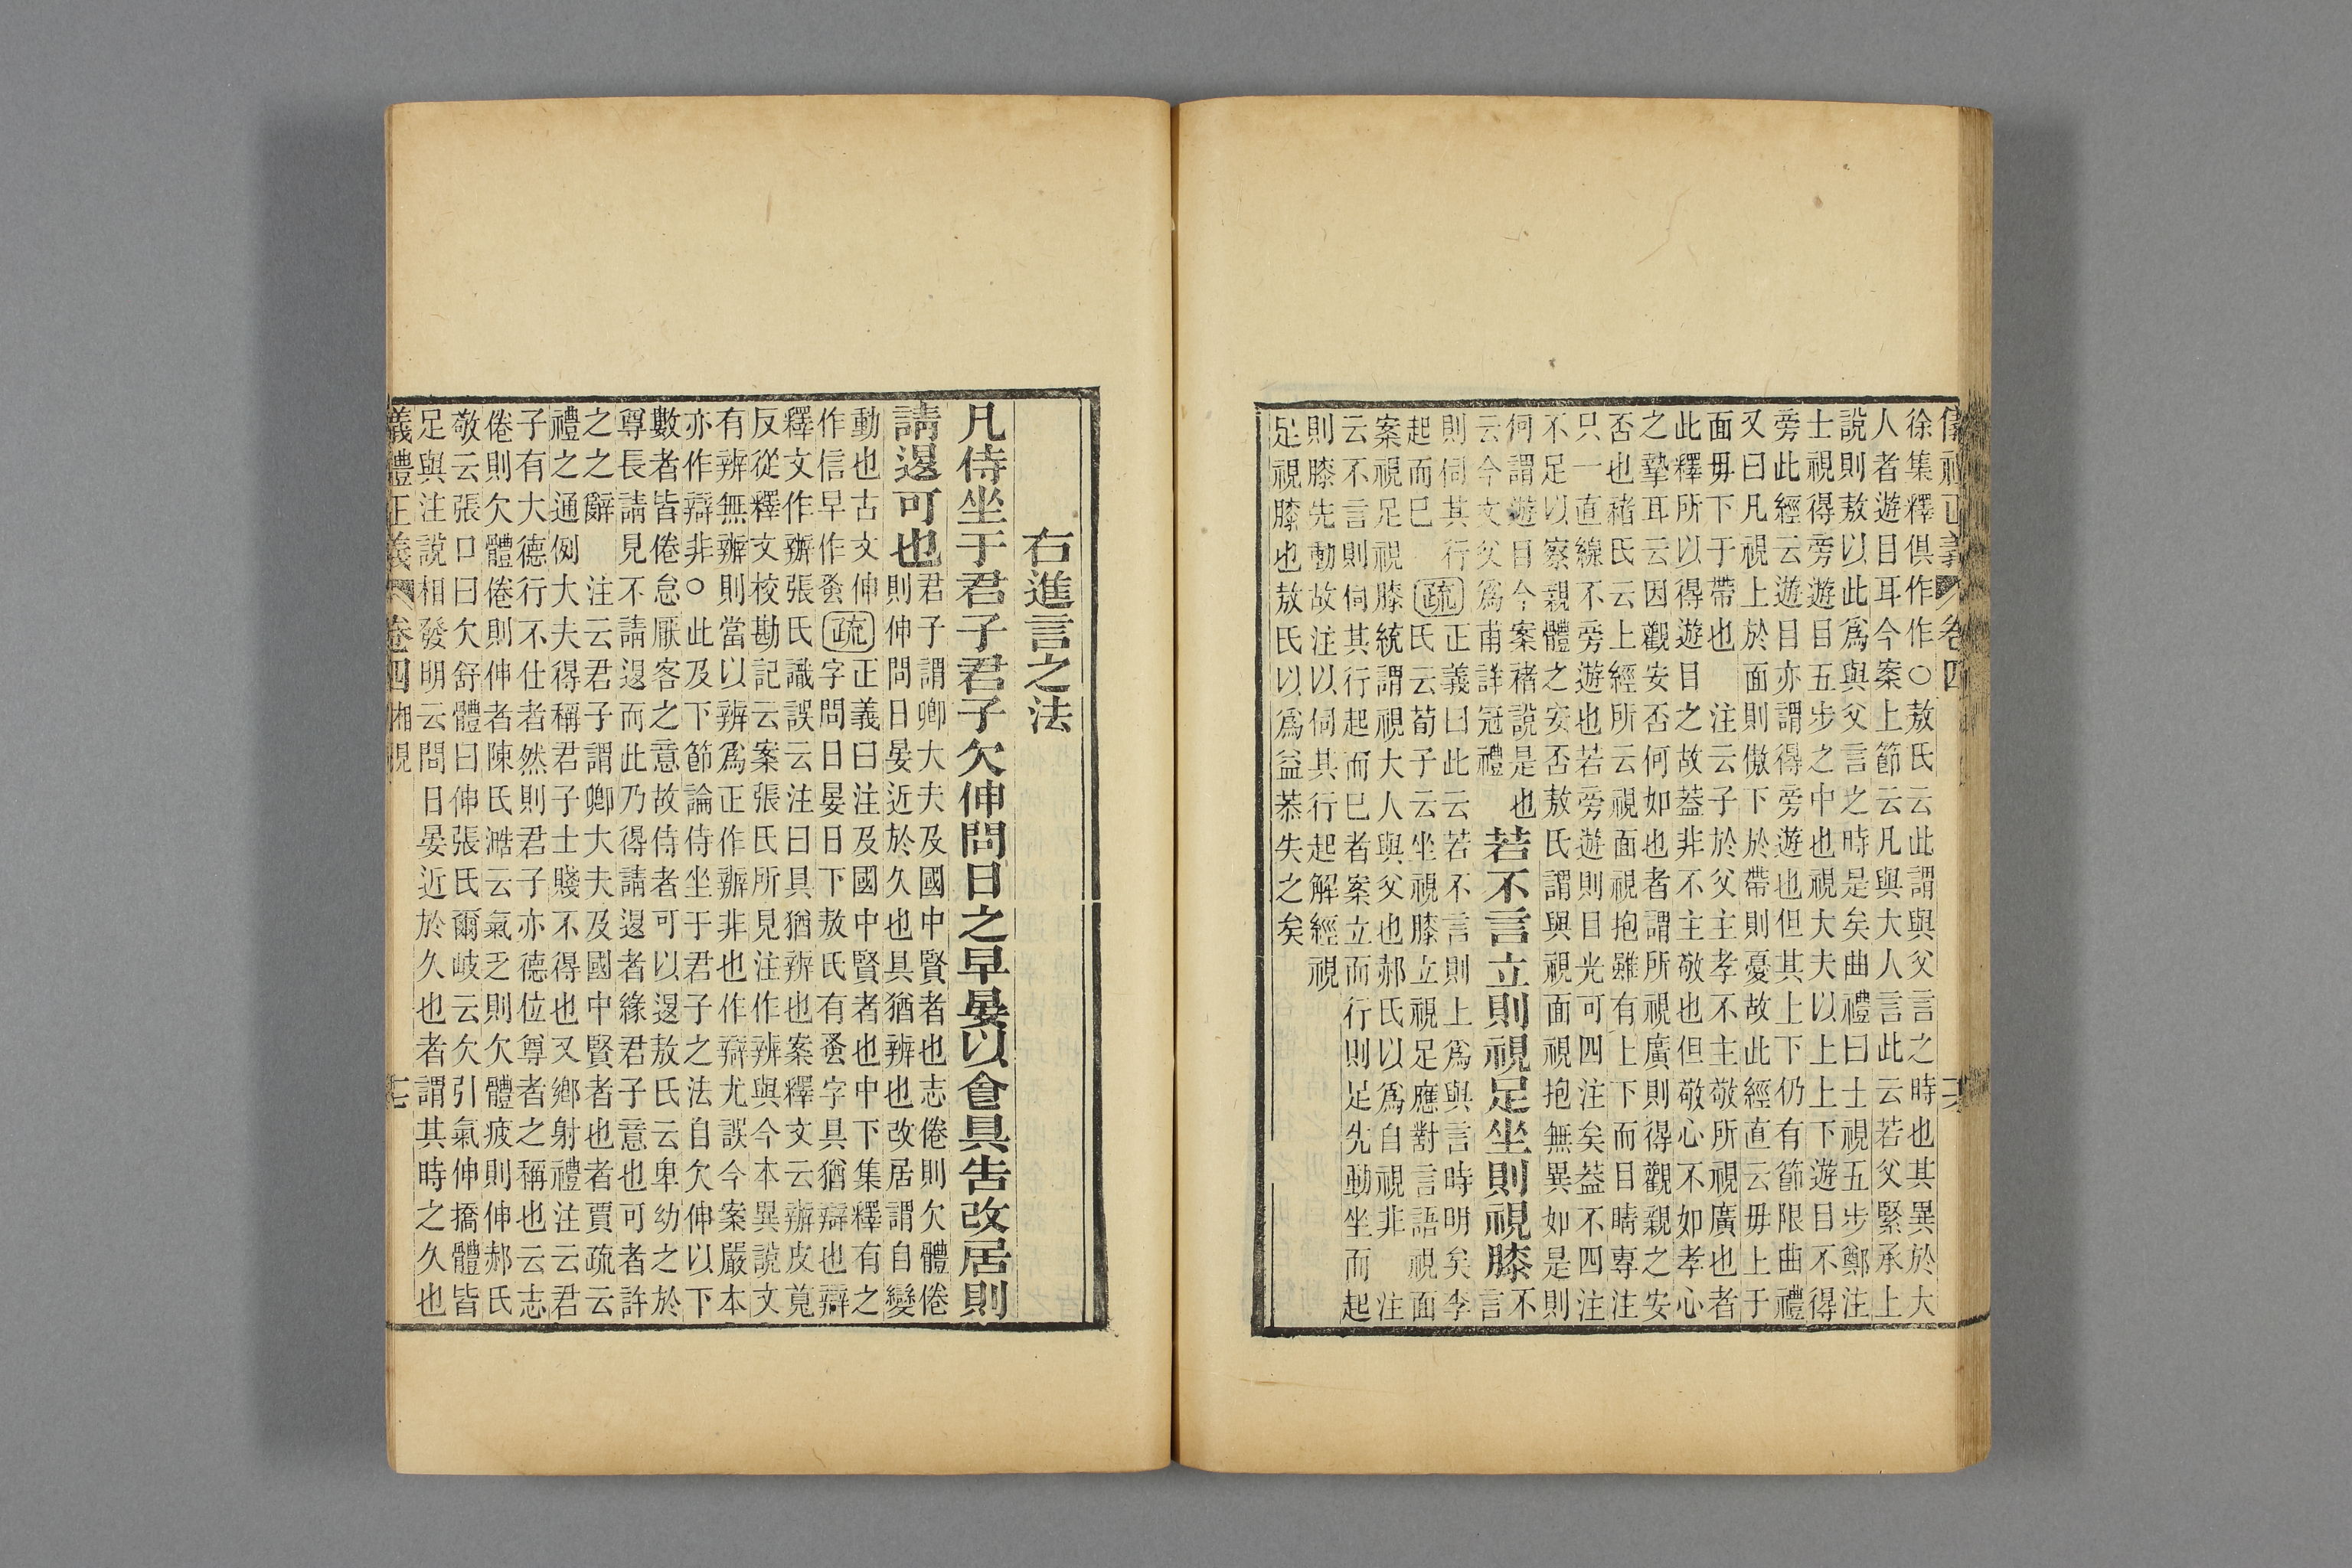 儀禮正義 卷四
徐集釋俱作作○敖氏云此謂與父言之時也其異於大
人者遊目耳今案上節云凡與大人言此云若父緊承上
說則敖以此爲與父言之時是矣曲禮曰士視五步鄭注
士視得旁遊目五步之中也視大夫以上上下遊目不得
旁此經云遊目亦謂得旁遊也但其上下仍有節限曲禮
又曰凡視上於面則傲下於帶則憂故此經直云毋上于
面毋下于帶也 注云子於父主孝不主敬所視廣也者
此釋所以得遊目之故蓋非不主敬也但敬心不如孝心
之摯耳云因觀安否何如也者謂所視廣則得觀親之安
否也褚氏云上經所云視面視抱雖有上下而目睛專注
只一直線不旁遊也若旁遊則目光可四注矣蓋不四注
不足以察親體之安否敖氏謂與視面視抱無異如是則
何謂遊目今案褚說是也
云今文父爲甫詳冠禮
若不言立則視足坐則視膝
不言
則伺其行
起而已
疏
正義曰此云若不言則上爲與言時明矣李
氏云荀子云坐視膝立視足應對言語視面
案視足視膝統謂視大人與父也郝氏以爲自視非 注
云不言則伺其行起而已者案立而行則足先動坐而起
則膝先動故注以伺其行起解經視
足視膝也敖氏以爲益恭失之矣
右進言之法
凡侍坐于君子君子欠伸問日之早晏以食具告改居則
請退可也
君子謂卿大夫及國中賢者也志倦則欠體倦
則伸問日晏近於久也具猶辨也改居謂自變
動也古文伸
作信早作蚤
疏
正義曰注及國中賢者也中下集釋有之
字問日晏日下敖氏有蚤字具猶辯也辯
釋文作辦張氏識誤云注曰具猶辨也案釋文云辦皮莧
反從釋文校勘記云案張氏所見注作辨與今本異說文
有辨無辦則當以辨爲正作辦非也作辯尤誤今案嚴本
亦作辯非○此及下節論侍坐于君子之法自欠伸以下
數者皆倦怠厭客之意故侍者可以退敖氏云卑幼之於
尊長請見不請退而此乃得請退者緣君子意也可者許
之之辭 注云君子謂卿大夫及國中賢者也者賈疏云
禮之通例大夫得稱君子士賤不得也又鄉射禮注云君
子有大德行不仕者然則君子亦德位尊者之稱也云志
倦則欠體倦則伸者陳氏澔云氣乏則欠體疲則伸郝氏
敬云張口曰欠舒體曰伸張氏爾岐云欠引氣伸撟體皆
足與注說相發明云問日晏近於久也者謂其時之久也
儀禮正義 卷四 相見